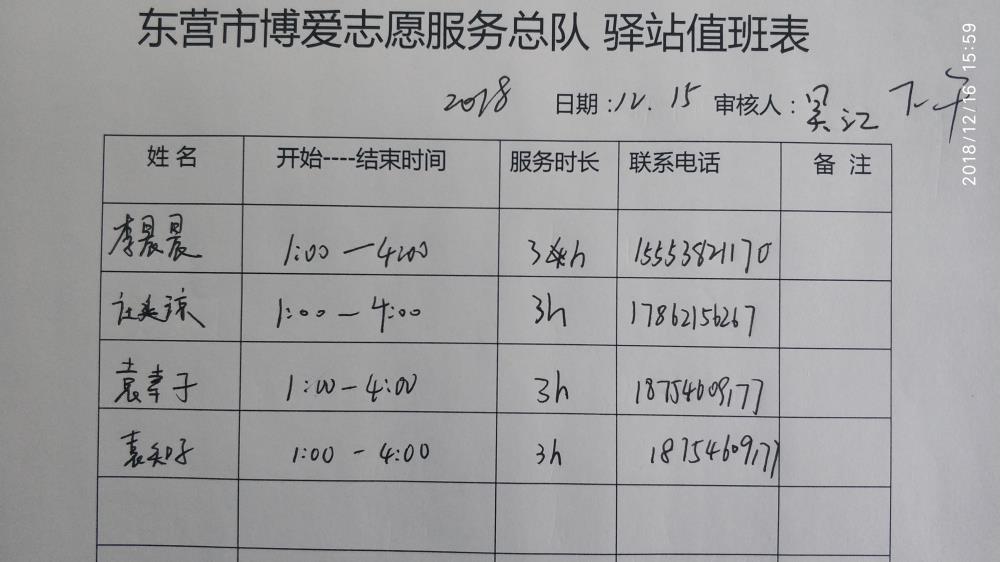 东营市博爱志愿服务总队 驿站值班表
2018 日期:12.15 审核人:吴江 下午
姓名 开始----结束时间 服务时长 联系电话 备注
李晨晨 1:00—4:00 3h 15553821170
1:00—4:00 3h 17862156267
袁幸子 1:00—4:00 3h 18754609177
袁知子 1:00-4:00 3h 18754609177
2018/12/16 15:59